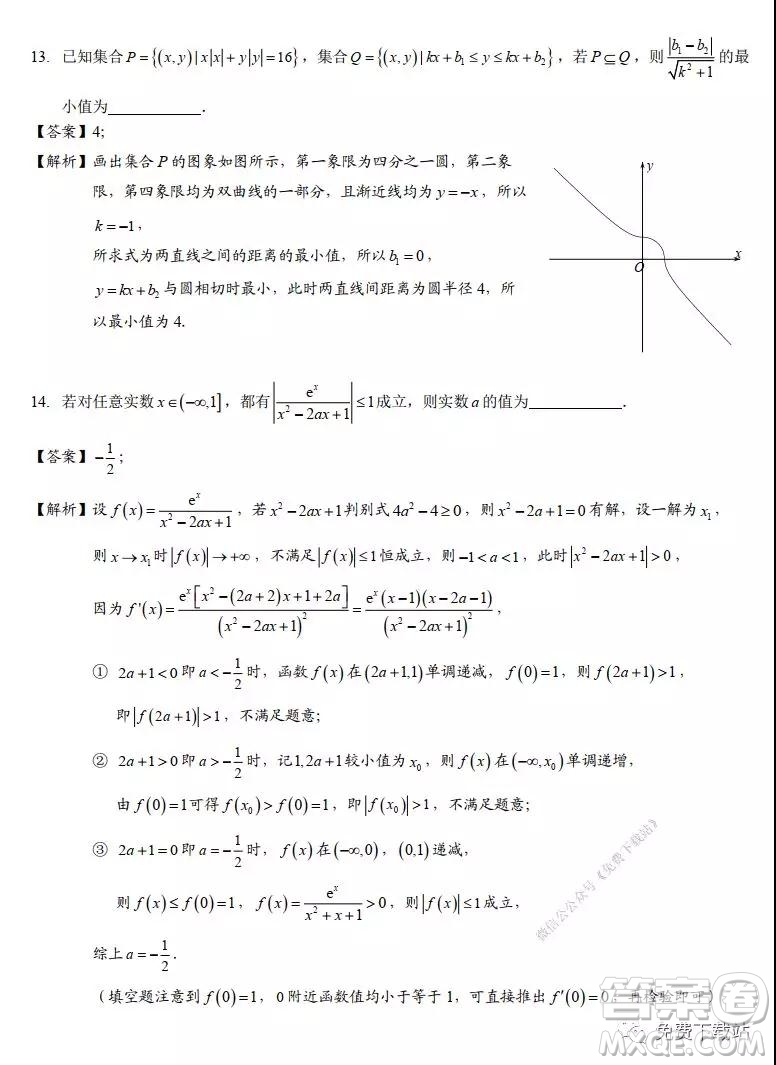 13. 已知集合 P={(x,y)|x|x|+y|y|=16}，集合 Q={(x,y)|kx+b₁≤y≤kx+b₂}，若 P⊆Q，则 |b₁-b₂|/√(k²+1) 的最
小值为____________．
【答案】4;
【解析】画出集合 P 的图象如图所示，第一象限为四分之一圆，第二象
限，第四象限均为双曲线的一部分，且渐近线均为 y=-x，所以
k=-1，
所求式为两直线之间的距离的最小值，所以 b₁=0，
y=kx+b₂ 与圆相切时最小，此时两直线间距离为圆半径 4，所
以最小值为 4．
y
x
O
14. 若对任意实数 x∈(-∞,1]，都有 |eˣ/(x²-2ax+1)|≤1 成立，则实数 a 的值为____________．
【答案】-1/2;
【解析】设 f(x)=eˣ/(x²-2ax+1)，若 x²-2ax+1 判别式 4a²-4≥0，则 x²-2a+1=0 有解，设一解为 x₁，
则 x→x₁ 时 |f(x)|→+∞，不满足 |f(x)|≤1 恒成立，则 -1<a<1，此时 |x²-2ax+1|>0，
因为 f'(x)=eˣ[x²-(2a+2)x+1+2a]/(x²-2ax+1)²=eˣ(x-1)(x-2a-1)/(x²-2ax+1)²，
① 2a+1<0 即 a<-1/2 时，函数 f(x) 在 (2a+1,1) 单调递减，f(0)=1，则 f(2a+1)>1，
即 |f(2a+1)|>1，不满足题意；
② 2a+1>0 即 a>-1/2 时，记 1,2a+1 较小值为 x₀，则 f(x) 在 (-∞,x₀) 单调递增，
由 f(0)=1 可得 f(x₀)>f(0)=1，即 |f(x₀)|>1，不满足题意；
③ 2a+1=0 即 a=-1/2 时，f(x) 在 (-∞,0)，(0,1) 递减，
则 f(x)≤f(0)=1，f(x)=eˣ/(x²+x+1)>0，则 |f(x)|≤1 成立，
综上 a=-1/2．
（填空题注意到 f(0)=1，0 附近函数值均小于等于 1，可直接推出 f'(0)=0，再检验即可）
微信公众号《免费下载站》
免费下载站
答案圈
MXQE.COM